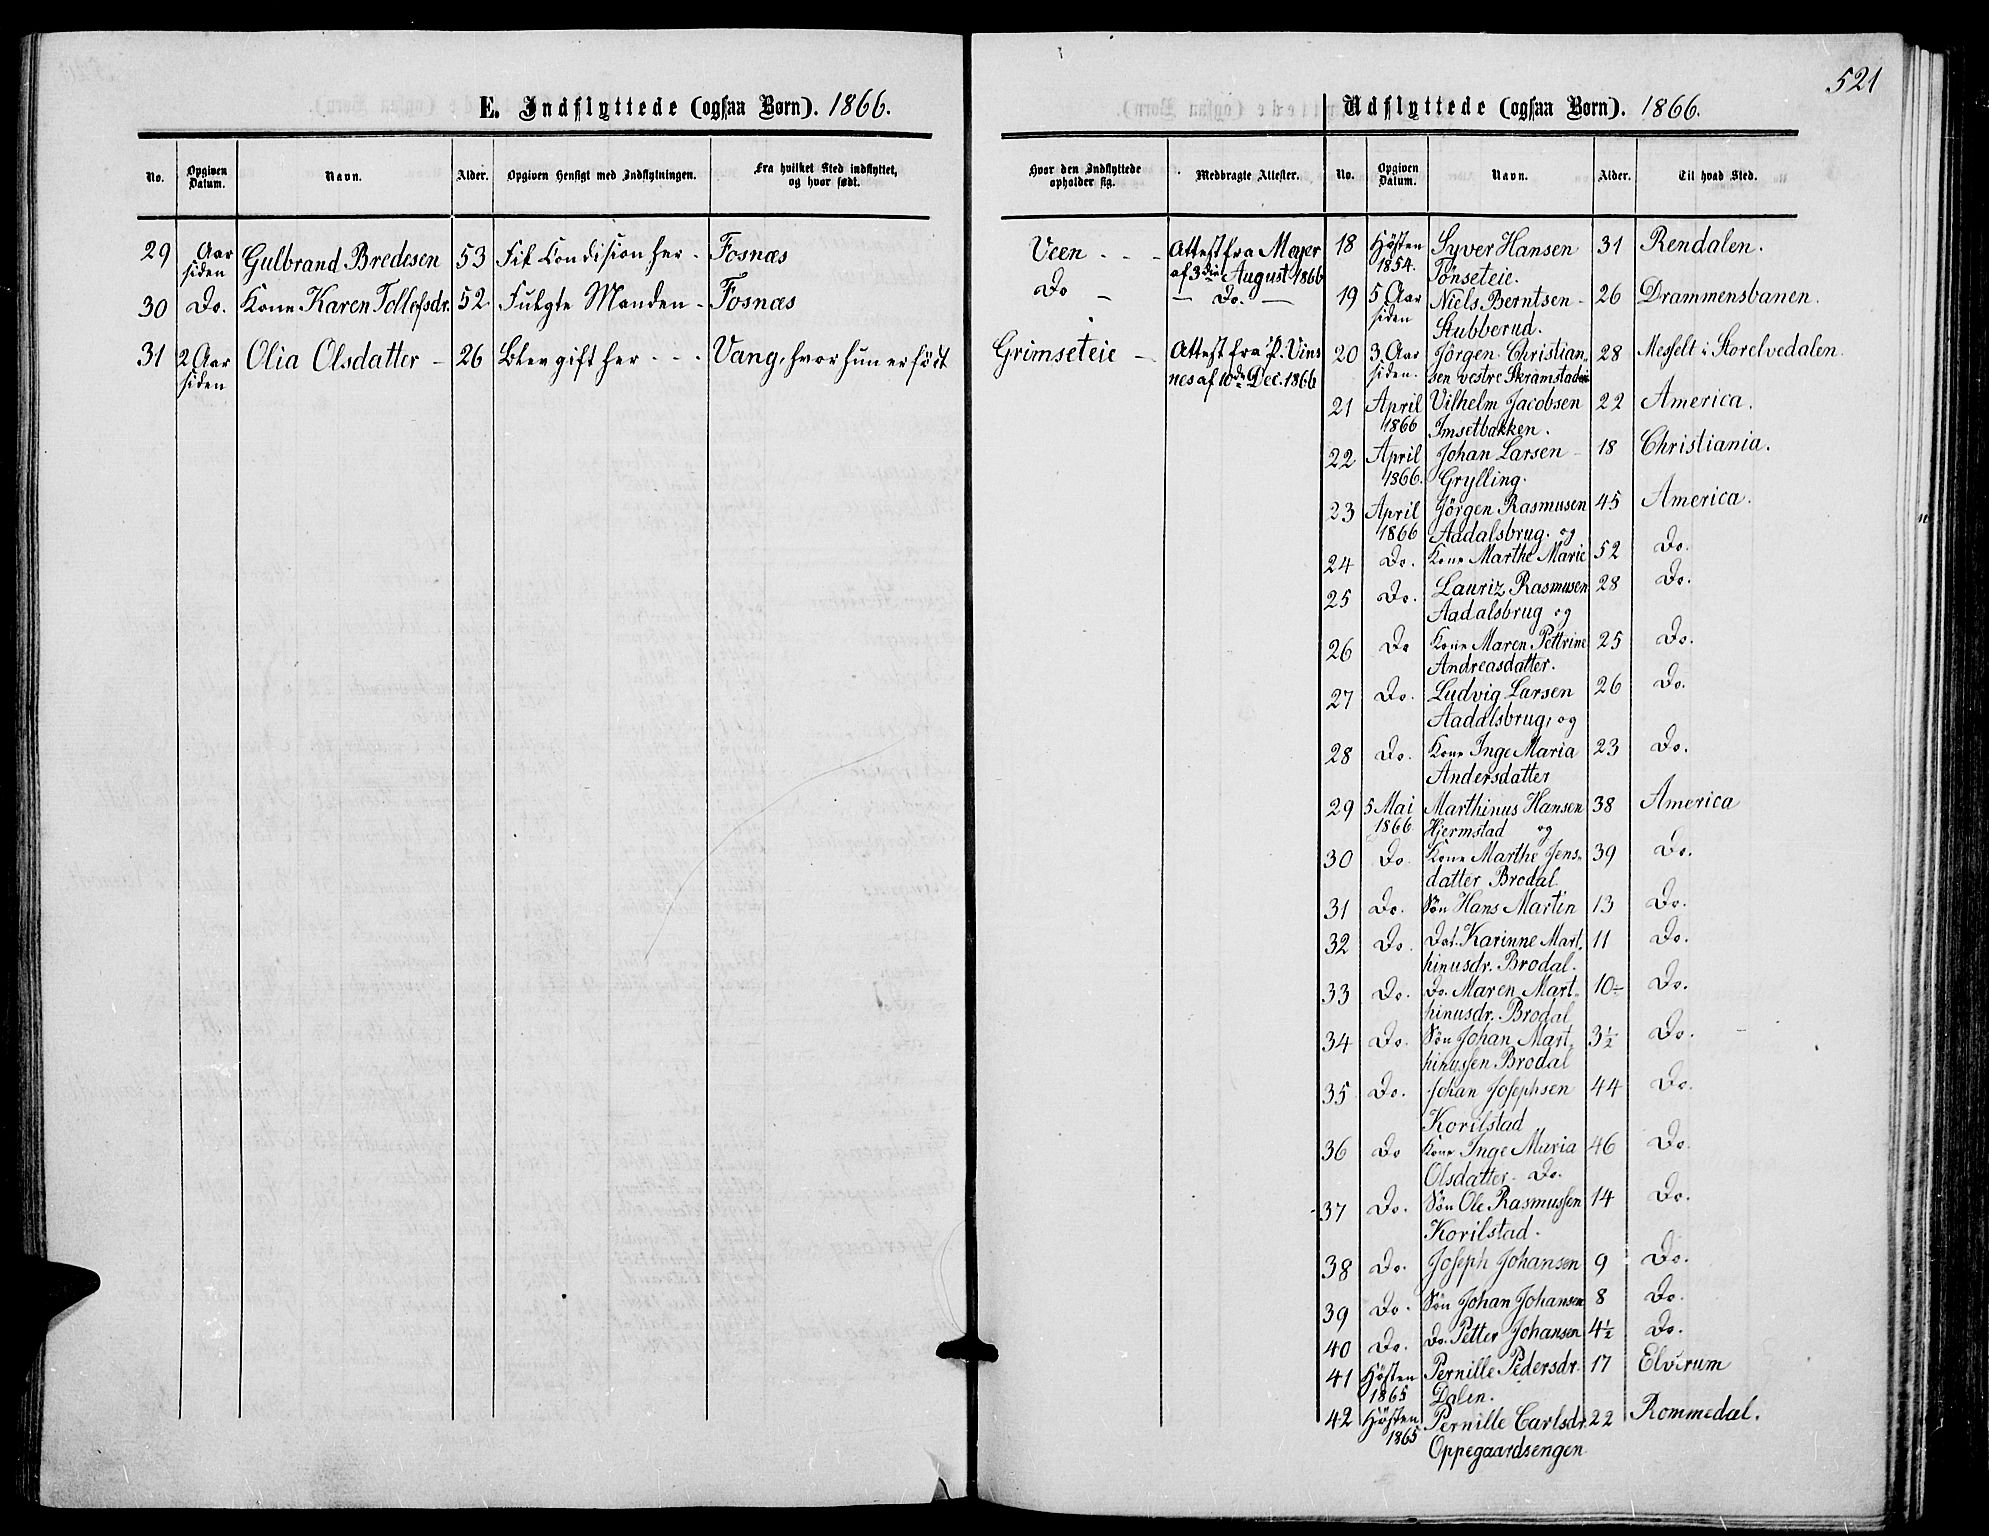 521
E. Indflyttede (ogsaa Børn). 1866.
No. Opgiven Datum. Navn. Alder. Opgiven Hensigt med Indflytningen. Fra hvilket Sted indflyttet, og hvor født. Hvor den Indflyttede opholder sig. Medbragte Attester.
29 Aar siden Gulbrand Bredesen 53 Fik Condision her - Fosnæs Veen - - - Attest fra Meyer af 3die August 1866
30 Do. Kone Karen Tollefsdr. 52 Fulgte Manden - Fosnæs Do - - Do. -
31 2 Aar siden Olia Olsdatter - 26 Blev gift her - - - Vang, hvor hun er født Grimseteie - Attest fra P. Vinsnes af 10de Dec. 1866
Udflyttede (ogsaa Børn). 1866.
No. Opgiven Datum. Navn. Alder. Til hvad Sted.
18 Høsten 1854. Syver Hansen Tønseteie. 31 Rendalen.
19 5 Aar siden Niels Berntsen - Stubberud. 26 Drammensbanen.
20 3 Aar siden. Jørgen Christiansen vestre Skramstadeie 28 Messelt i Storelvedalen.
21 April 1866 Vilhelm Jacobsen Imsetbakken. 22 America.
22 April 1866. Johan Larsen - Grylling. 18 Christiania.
23 April 1866 Jørgen Rasmusen Aadalsbrug. og 45 America.
24 Do. Kone Marthe Marie 52 Do.
25 Do. Lauriz Rasmusen Aadalsbrug og 28 Do.
26 Do Kone Maren Pettrine Andreasdatter. 25 Do.
27 Do. Ludvig Larsen Aadalsbrug, og 26 Do.
28 Do. Kone Inge Maria Andersdatter 23 Do.
29 5 Mai 1866 Marthinus Hansen Hjermstad og 38 America
30 Do. Kone Marthe Jensdatter Brodal. 39 Do.
31 Do. Søn Hans Martin 13 Do.
32 Do. Dat. Karinne Marthinusdr. Brodal. 11 Do.
33 Do. Do. Maren Marthinusdr. Brodal 10 - Do.
34 Do. Søn Johan Marthinussen Brodal 3½ Do.
35 Do. Johan Josephsen Korilstad 44 Do.
36 Do Kone Inge Maria Olsdatter. Do. 46 Do.
37 Do. Søn Ole Rasmussen Korilstad. 14 Do.
38 Do. Joseph Johansen 9 Do.
39 Do. Søn Johan Johansen 8 Do.
40 Do. Do. Petter Johansen 4½ Do.
41 Høsten 1865 Pernille Pedersdr. Dalen. 17 Elverum
42 Høsten 1865 Pernille Carlsdr. Oppegaardsengen 22 Rommedal.